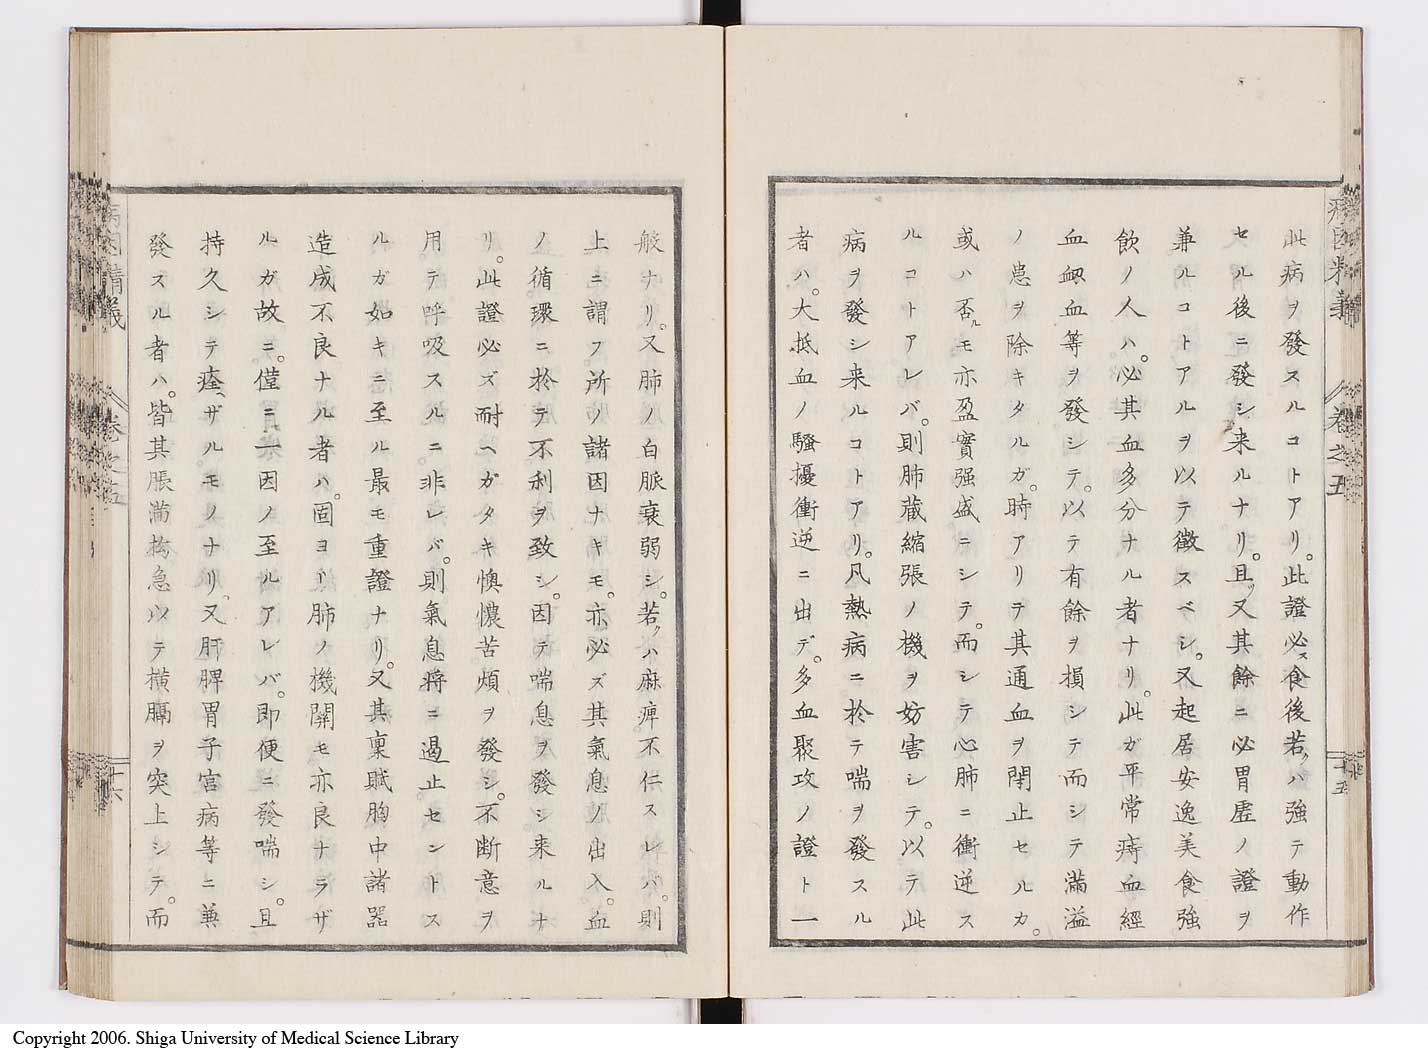 此病ヲ發スルコトアリ。此證必ズ食後若ハ強テ動作
セル後ニ發シ来ルナリ。且ツ又其餘ニ必胃虚ノ證ヲ
兼ルコトアルヲ以テ徴スベシ。又起居安逸美食強
飲ノ人ハ。必其血多分ナル者ナリ。此ガ平常痔血經
血衂血等ヲ發シテ。以テ有餘ヲ損シテ而シテ滿溢
ノ患ヲ除キタルガ。時アリテ其通血ヲ閉止セルカ。
或ハ否ルモ亦盈實强盛ニシテ。而シテ心肺ニ衝逆ス
ルコトアレバ。則肺蔵縮張ノ機ヲ妨害シテ。以テ此
病ヲ發シ来ルコトアリ。凡熱病ニ於テ喘ヲ發スル
者ハ。大抵血ノ騷擾衝逆ニ出デ。多血聚攻ノ證ト一
病因精義 卷之五 十五
般ナリ。又肺ノ白脈衰弱シ。若クハ麻痺不仁スレバ。則
上ニ謂フ所ノ諸因ナキモ。亦必ズ其氣息ノ出入。血
ノ循環ニ於テ不利ヲ致シ。因テ喘息ヲ發シ来ルナ
リ。此證必ズ耐ヘガタキ懊憹苦煩ヲ發シ。不断意ヲ
用テ呼吸スルニ非レバ。則氣息将ニ遏止セントス
ルガ如キニ至ル最モ重證ナリ。又其禀賦胸中諸器
造成不良ナル者ハ。固ヨリ肺ノ機關モ亦良ナラザ
ルガ故ニ。僅ニ一因ノ至ルアレバ。即便ニ發喘シ。且
持久シテ痊ヘザルモノナリ。又肝脾胃子宮病等ニ兼
發スル者ハ。皆其脹滿拘急以テ横膈ヲ突上シテ。而
病因精義 卷之五 十六
Copyright 2006. Shiga University of Medical Science Library